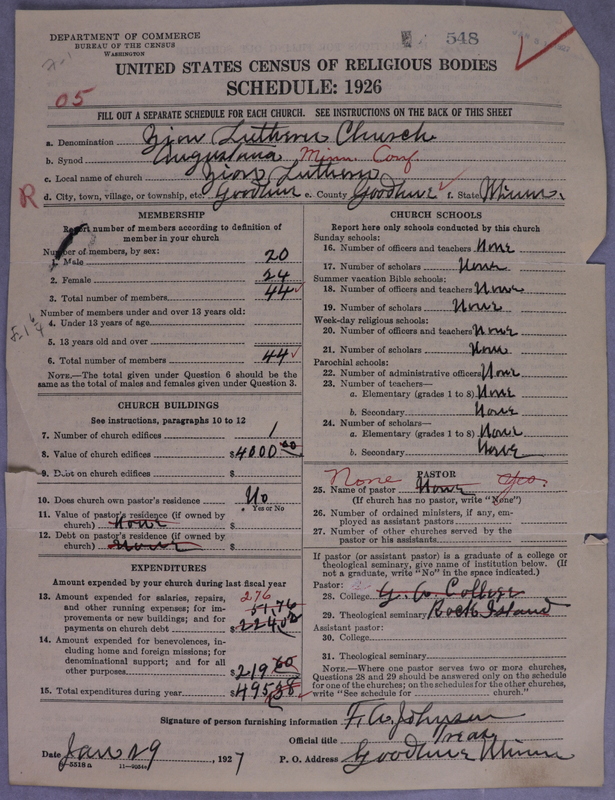 DEPARTMENT OF COMMERCE
BUREAU OF THE CENSUS
WASHINGTON
548
UNITED STATES CENSUS OF RELIGIOUS BODIES
SCHEDULE: 1926
05
FILL OUT A SEPARATE SCHEDULE FOR EACH CHURCH. SEE INSTRUCTIONS ON THE BACK OF THIS SHEET
a. Denomination Zion Lutheran Church
b. Synod Augustana Minn. Conf
c. Local name of church Zion Lutheran
R d. City, town, village, or township, etc. Goodhue e. County Goodhue f. State Minn.
MEMBERSHIP
Report number of members according to definition of
member in your church
Number of members, by sex:
1. Male 20
2. Female 24
3. Total number of members 44
Number of members under and over 13 years old:
4. Under 13 years of age
5. 13 years old and over
6. Total number of members 44
NOTE.—The total given under Question 6 should be the
same as the total of males and females given under Question 3.
CHURCH BUILDINGS
See instructions, paragraphs 10 to 12
7. Number of church edifices 1
8. Value of church edifices $4000 00
9. Debt on church edifices $
10. Does church own pastor's residence No
Yes or No
11. Value of pastor's residence (if owned by
church) None $
12. Debt on pastor's residence (if owned by
church) None $
EXPENDITURES
Amount expended by your church during last fiscal year
13. Amount expended for salaries, repairs, 276
and other running expenses; for im- 51,76
provements or new buildings; and for
payments on church debt $
14. Amount expended for benevolences, in-
cluding home and foreign missions; for
denominational support; and for all
other purposes $219 60
15. Total expenditures during year $495
CHURCH SCHOOLS
Report here only schools conducted by this church
Sunday schools:
16. Number of officers and teachers None
17. Number of scholars None
Summer vacation Bible schools:
18. Number of officers and teachers None
19. Number of scholars None
Week-day religious schools:
20. Number of officers and teachers None
21. Number of scholars None
Parochial schools:
22. Number of administrative officers None
23. Number of teachers—
a. Elementary (grades 1 to 8) None
b. Secondary None
24. Number of scholars—
a. Elementary (grades 1 to 8) None
b. Secondary None
None PASTOR
25. Name of pastor None
(If church has no pastor, write "None")
26. Number of ordained ministers, if any, em-
ployed as assistant pastors
27. Number of other churches served by the
pastor or his assistants
If pastor (or assistant pastor) is a graduate of a college or
theological seminary, give name of institution below. (If
not a graduate, write "No" in the space indicated.)
Pastor:
28. College G. A. College
29. Theological seminary Rock Island
Assistant pastor:
30. College
31. Theological seminary
NOTE.—Where one pastor serves two or more churches,
Questions 28 and 29 should be answered only on the schedule
for one of the churches; on the schedules for the other churches,
write "See schedule for church."
Signature of person furnishing information F. A. Johnson
Official title Treas
Date Jan 29, 1927 P. O. Address Goodhue Minn
5518 a